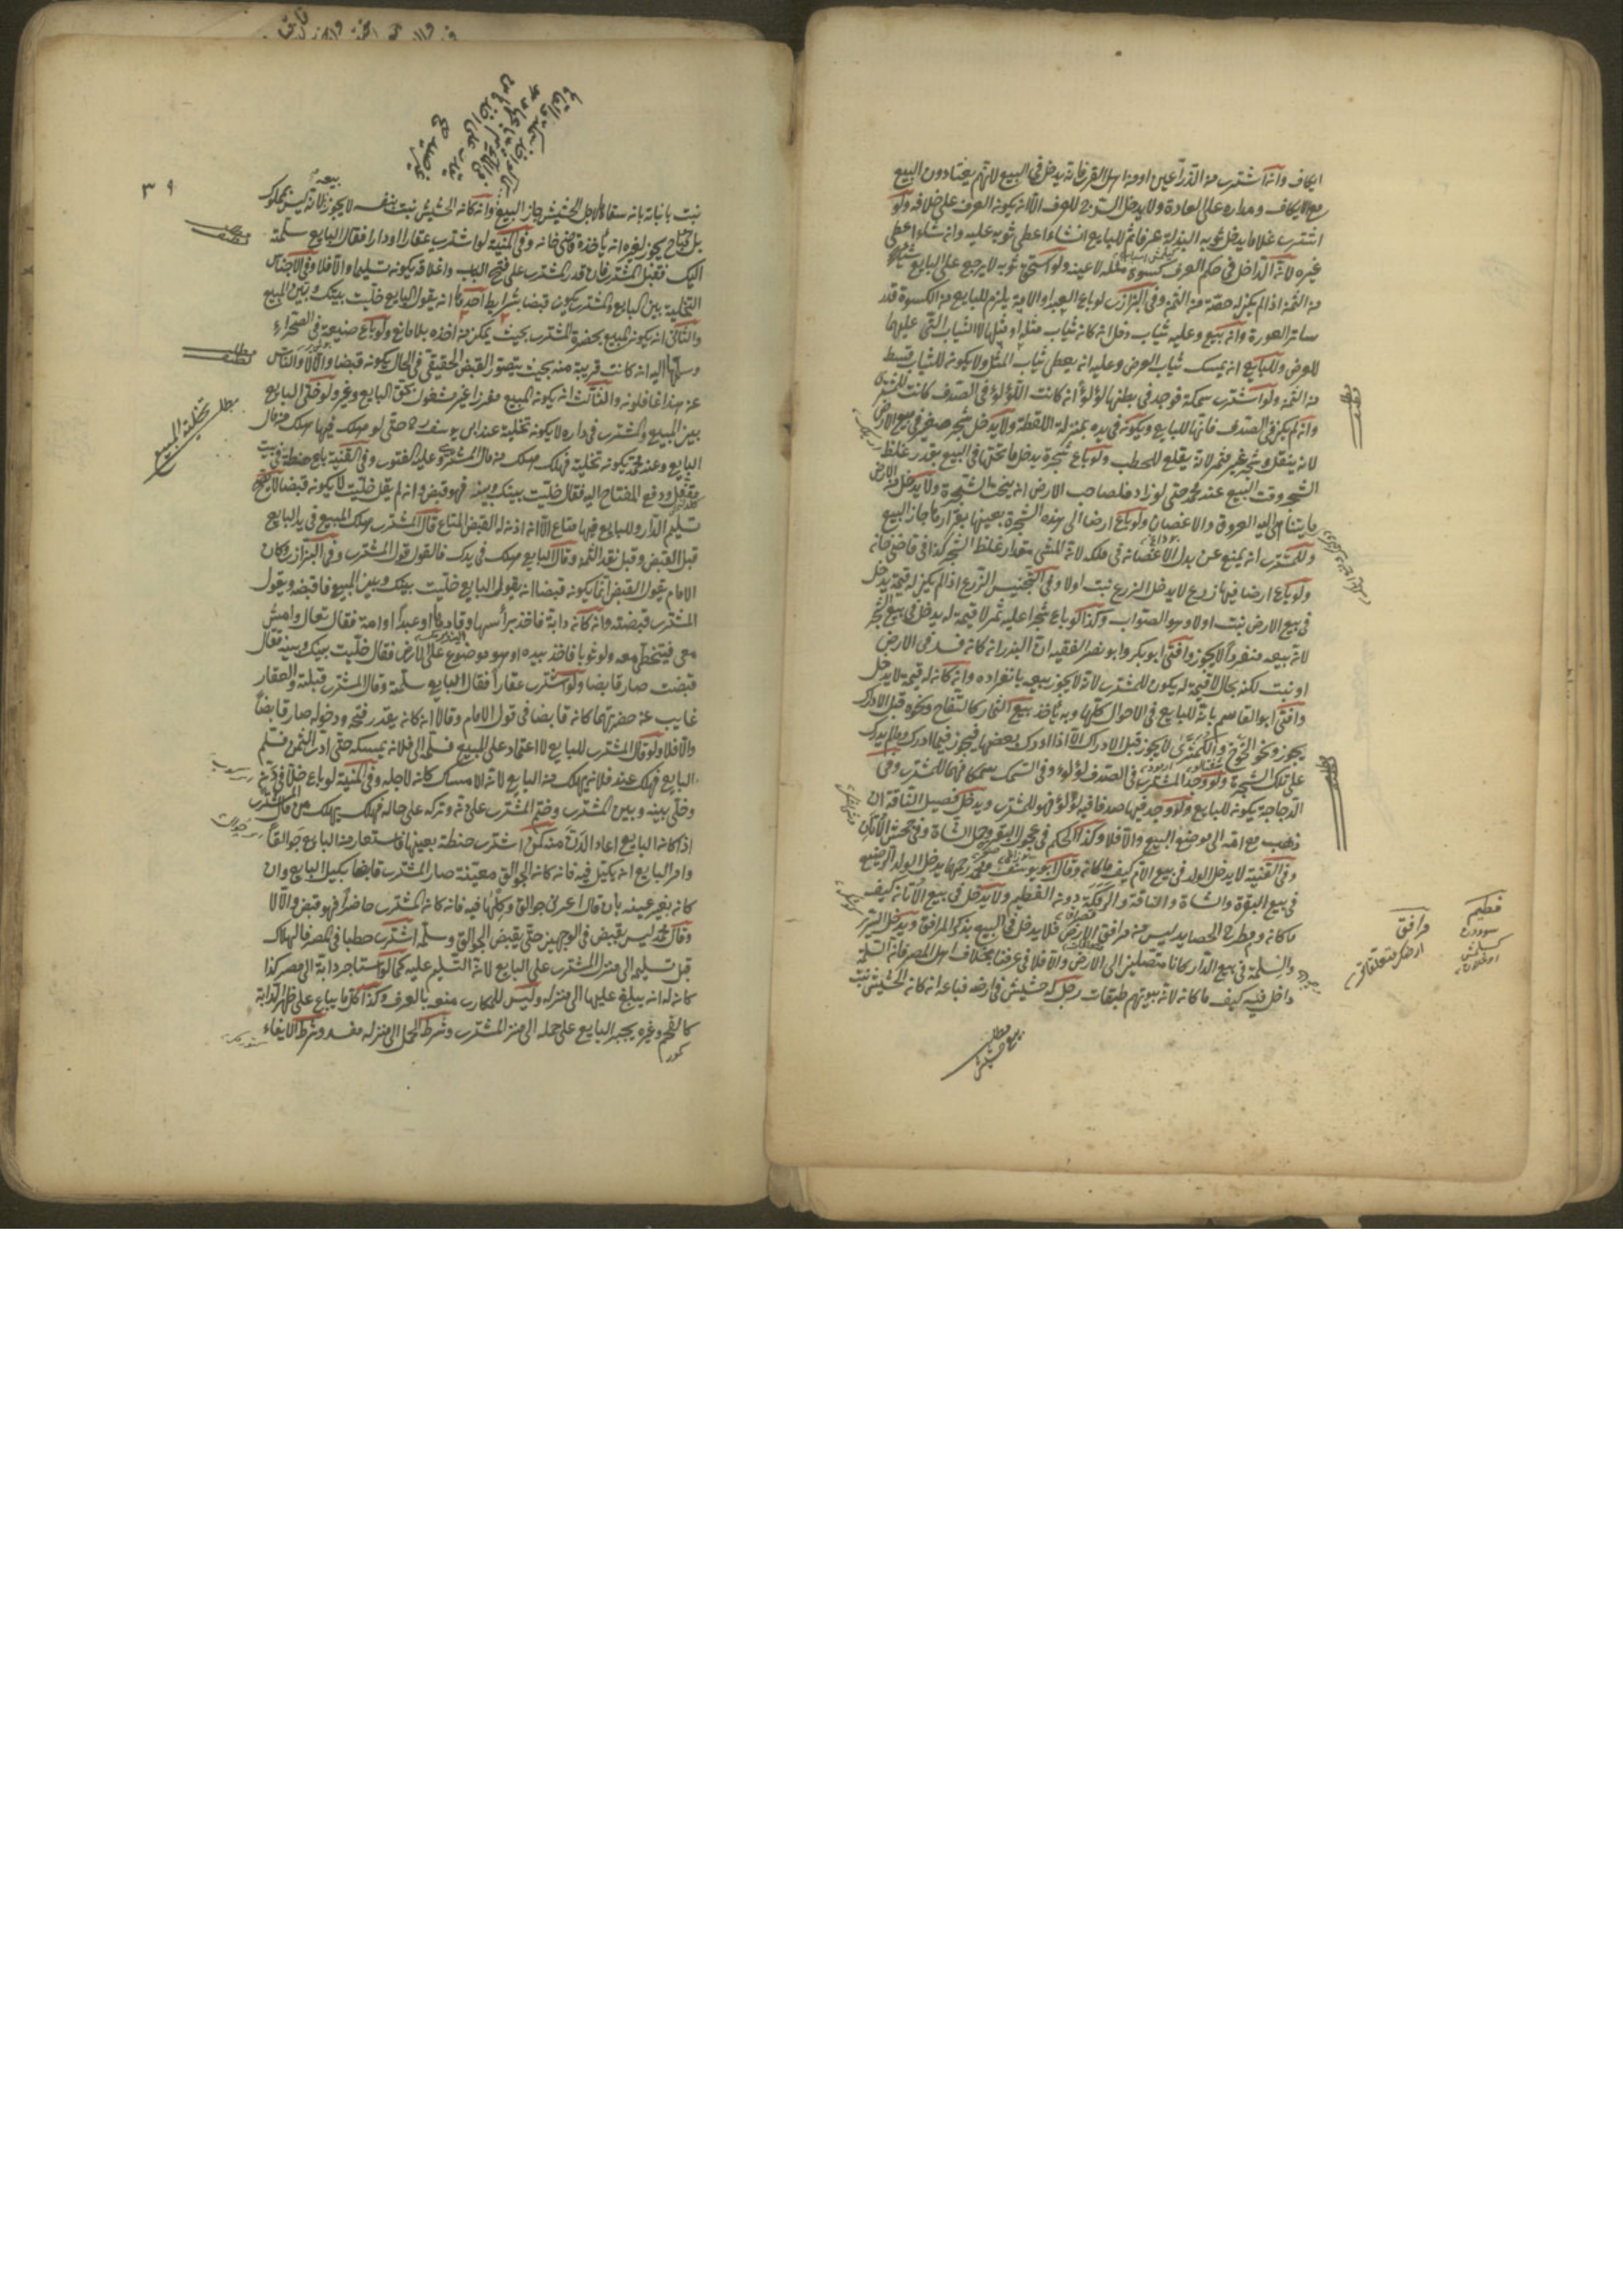 ايكاف وانه اشترى من الذراعين او من اهل القرى فانه يدخل في البيع لانهم يعتادون البيع
مع الايكاف ومداره على العادة ولا يدخل السرج للعرف الا انه يكون العرف على خلافه ولو
اشترى غلاما يدخل ثوبه البذلة عرفا ثم للبايع ان شاء اعطى ثوبه عليه وان شاء اعطى
غيره لانه الداخل في حكم العرف كسوة مثله لا عينه ولو استحق ثوبه لا يرجع على البايع بشيء
من الثمن اذ لم يكن له حصة من الثمن وفي البزازى لو باع العبد او الامة يلزم للبايع من الكسوة قدر
ساتر العورة وانه بيع وعليه ثياب دخل ان كانه ثياب مثله او مثلها لا الثياب التي عليها
للعرض وللبايع ان يمسك ثياب العرض وعليه انه يعطى ثياب المثل ولا يكونه للثياب قسط
من الثمن ولو اشترى سمكة فوجد في بطنها لؤلؤا ان كانت اللؤلؤ في الصدف كانت للمشترى
وانه لم يكن في الصدف فانها للبايع ويكونه في يده بمنزلة اللقطة ولا يدخل شجر صغير في بيع الارض
لانه ينقل وشجر غير مثمر لانه يقلع للحطب ولو باع شجرة يدخل ما تحتها في البيع بقدر غلظ
الشجر وقت البيع عند محمد حتى لو زاد فلصاحب الارض ان ينحت الشجرة ولا يدخل من الارض
ما يتناهى اليه العروق والاغصان ولو باع ارضا الى هذه الشجرة بعينها بقرارها جاز البيع
وللمشترى انه يمنع عن بدل الاغصان في ملكه لانه للمشترى مقدار غلظ الشجر كذا في قاضيخان
ولو باع ارضا فيها زرع لا يدخل الزرع نبت اولا وفي التجنيس الزرع اذا لم يكن له قيمة يدخل
في بيع الارض نبت اولا وهو الصواب وكذا لو باع شجرا عليه ثمر لا قيمة له يدخل في بيع الشجر
لانه بيعه منفردا لا يجوز وافتى ابو بكر وابو نصر الفقيه ان البذر ان كانه فسد في الارض
او نبت لكنه بحال لا قيمة له يكون للمشترى لانه لا يجوز بيعه بانفراده وانه كانه له قيمة لا يدخل
وافتى ابو القاسم بانه للبايع في الاحوال كلها وبه نأخذ بيع الثمار كالتفاح ونحوه قبل الادراك
يجوز ونحو الخوخ والكمثرى لا يجوز قبل الادراك الا اذا ادرك بعضها فيجوز فيما ادرك وما لم يدرك
على تلك الشجرة ولو وجد المشترى في الصدف لؤلؤ وفي السمك سمكا فهما للمشترى وفي
الدجاجة يكونه للبايع ولو وجد فيها صدفا فيه لؤلؤ فهو للمشترى ويدخل فصيل الناقة ان
ذهب مع امه الى موضع البيع والا فلا وكذا الحكم في عجول البقر وحمل الشاة وفي جحش الاتان
وفي القنية لا يدخل الولد في بيع الام كيف ما كانه وقال ابو يوسف ومحمد رحمهما يدخل الولد الرضيع
في بيع البقرة والشاة والناقة والرمكة دونه الفطيم ولا يدخل في بيع الاتانه كيف
ما كانه ومطرح الحصايد ليس من مرافق الارض فلا يدخل في البيع بذكر المرافق ويدخل السرر
والسلمة في بيع الدار كانا متصلين الى الارض والا فلا في عرفنا بخلاف اهل المصر فانه السلمة
داخل فيه كيف ما كانه لانه بيوتهم طبقات رجل له حشيش في ارضه فباعه انه كانه الحشيش نبت
مطلب
بيع حشيش
مطلب
مطلب
فطيم
سوددن
كسلمش
اوغلان
مرافق
ارضك متعلقاتى
٣٩
نبت بانباته بانه سقاه لاجل الحشيش جاز البيع وانه كانه الحشيش نبت بنفسه لا يجوز بيعه لانه ليس بمملوك
بل مباح يجوز لغيره انه يأخذه قاضي خانه وفي المنية لو اشترى عقارا او دارا فقال البايع سلمته
اليك فقبل المشترى فان قدر المشترى على فتح الباب واغلاقه يكونه تسليما والا فلا وفي الاجناس
التخلية بين البايع والمشترى يكون قبضا بشرايط احدها انه يقول البايع خليت بينك وبين المبيع
والثاني انه يكونه المبيع بحضرة المشترى بحيث يمكن من اخذه بلا مانع ولو باع ضيعة في الصحراء
وسلمها اليه انه كانت قريبة منه بحيث يتصور القبض الحقيقي في الحال يكونه قبضا والا لا والناس
عن هذا غافلونه والثالث انه يكونه المبيع مفرزا غير مشغول بحق البايع وغيره ولو خلى البايع
بين المبيع والمشترى في داره لا يكونه تخلية عند ابى يوسف حتى لو هلك فيها هلك من مال
البايع وعند محمد يكونه تخلية فهلك هلك من مال المشترى وعليه الفتوى وفي القنية باع حنطة في بيت
مقفل ودفع المفتاح اليه فقال خليت بينك وبينه فهو قبض وانه لم يقل خليت لا يكونه قبضا لا يصح
تسليم الدار وللبايع فيها متاع الا انه اذنه له القبض المتاع قال المشترى هلك المبيع في يد البايع
قبل القبض وقبل نقد الثمن وقال البايع هلك في يدك فالقول قول المشترى وفي البزازى وكان
الامام يقول القبض انما يكونه قبضا انه يقول البايع خليت بينك وبين المبيع فاقبضه ويقول
المشترى قبضته وانه كانه دابة فاخذ برأسها وقادها او عبدا او امة فقال تعال وامش
معي فيتخطى معه ولو ثوبا فاخذ بيده او هو موضوع على الارض فقال خليت بينك وبينه فقال
قبضت صار قابضا ولو اشترى عقارا فقال البايع سلمته وقال المشترى قبلته والعقار
غايب عن حضرتهما كانه قابضا في قول الامام وقالا انه كانه يقدر فتحه ودخوله صار قابضا
والا فلا ولو قال المشترى للبايع لا اعتماد على المبيع فسلمه الى فلانه يمسكه حتى ادى الثمن فسلم
البايع فهلك عند فلانه يهلك من البايع لانه الامساك كانه لاجله وفي المنية لو باع خلا في دن
وخلى بينه وبين المشترى وختم المشترى على دنه وتركه على حاله فهلك يهلك من مال المشترى
اذا كانه البايع اعاد الدن متمكن اشترى حنطة بعينها فاستعار من البايع جوالقا
وامر البايع انه يكيل فيه فانه كانه الجوالق معينة صار المشترى قابضا بكيل البايع وان
كانه بغير عينه بان قال اعرنى جوالق وكلها فيه فانه كانه المشترى حاضرا فهو قبض والا لا
وقال محمد ليس بقبض في الوجهين حتى يقبض الجوالق وسلمه اشترى حطبا في المصر فالهلاك
قبل تسليمه الى منزل المشترى على البايع لانه التسليم عليه كما لو استاجر دابة الى مصر كذا
كانه له انه يبلغ عليها الى منزله وليس للمكارى منعه بالعرف وكذا كل ما يباع على ظهر الدابة
كالفحم وغيره يجبر البايع على حمله الى منزل المشترى وشرط الحمل الى منزله مفسد وشرط الايفاء
مطلب
مطلب
مطلب تخلية المبيع
كمور